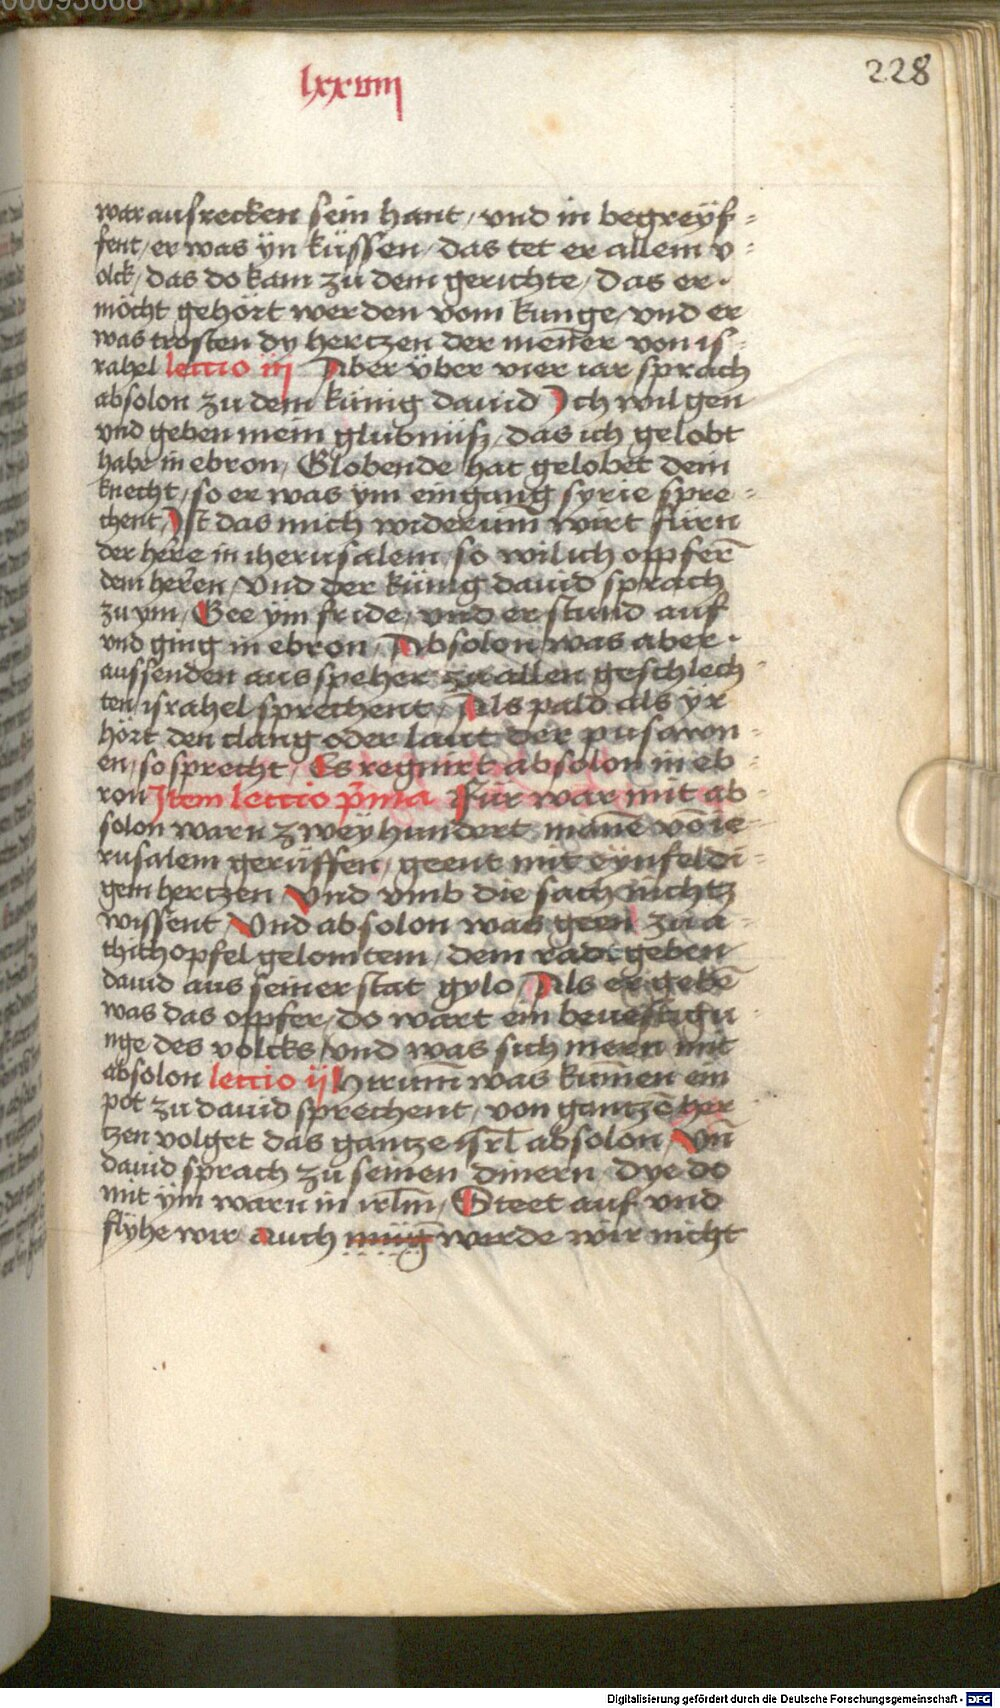 00093668
lxxviii
228
war ausrecken sein hant / vnd in begreÿf-
fent / er was ÿn küssen / das tet er allem v-
olck / das do kam zu dem gerichte / das er
möcht gehört werden vom kunge / vnd er
was trosten dy hertzen der men̄er von is-
rahel lectio iij Aber über vier iar sprach
absolon zu dem künig dauid Ich wil gen
vnd geben mein glubnüsz / das ich gelobt
habe in ebron / Globende hat gelobet dein
knecht / so er was ym eingang syrie spre-
chent / Ist das mich widerum̄ wirt fürn
der her̄e in iherusalem so wil ich opfer̄
dem her̄en / Vnd der künig dauid sprach
zu ym / Gee ym fride / vnd er stund auf
vnd ging in ebron / Absolon was aber
aussenden aus speher zu allen geschlech-
ten israhel sprechent / Als pald als ÿr
hört den clang oder laut der pusawn-
en / so sprecht / Es regnirt absolon in eb-
ron Item lectio p̄ma Für war mit ab-
solon warn zweÿhundert man̄e vō ie-
rusalem gerüffen / geent mit eÿnfeldi-
gem hertzen Vnd vmb die sach nichtz
wissent Vnd absolon was geen zu a-
chithopfel gelomtem / dem radtgeben
dauid aus seiner stat gylo / Als er gebē
was das opfer / do wart ein beuestigu-
nge des volcks / vnd was sich mern mit
absolon lectio ij Hirum̄ was kumen ein
pot zu dauid sprechent / von gantzē her
tzen volget das gantze isrl̄ absolon / Vn̄
dauid sprach zu seinen dinern dye do
mit ÿm warn in irlm̄ / Steet auf vnd
flÿhe wir auch müḡ werde wir nicht
Digitalisierung gefördert durch die Deutsche Forschungsgemeinschaft - DFG